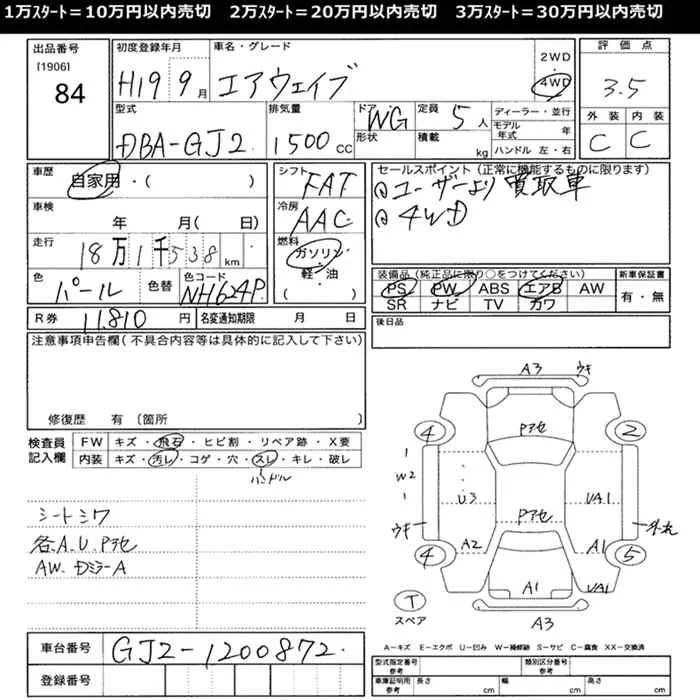 1万スタート＝10万円以内売切　2万スタート＝20万円以内売切　3万スタート＝30万円以内売切
出品番号
[1906]
84
初度登録年月
H19 9月
車名・グレード
エアウェイブ
2WD
・
4WD
評価点
3.5
外装 内装
C C
型式
DBA-GJ2
排気量
1500cc
ドア
形状
WG
定員 5人
積載 kg
ディーラー・並行
モデル年式 年
ハンドル 左・右
車歴
自家用・（ ）
車検
年 月（ 日）
走行
18万1千538km
色
パール
色替
色コード
NH624P
シフト
FAT
冷房
AAC
燃料
ガソリン・
軽・油
セールスポイント（正常に機能するものに限ります）
ユーザーより買取車
4WD
装備品（純正品に限り○をつけてください）
PS PW ABS エアB AW
SR ナビ TV カワ
新車保証書
有・無
R券 11,810円
名変通知期限 月 日
後日品
注意事項申告欄（不具合内容等は具体的に記入して下さい）
修復歴 有〔箇所
検査員
記入欄
FW キズ・飛石・ヒビ割・リペア跡・X要
内装 キズ・汚レ・コゲ・穴・スレ・キレ・破レ
ハンドル
シートシワ
各.A.U.Pアセ
AW.Dミラ-A
A3 ウキ
4 Pアセ 2
1
W2
1
U3 Pアセ UA1
ウキ
4 A2 A1 5
A1 UA1
T
スペア
A3
A－キズ E－エクボ U－凹み W－補修跡 S－サビ C－腐食 XX－交換済
車台番号
GJ2-1200872
登録番号
型式指定番号
参考
類別区分番号
参考
車庫証明用
参考
長さ cm 幅 cm 高さ cm